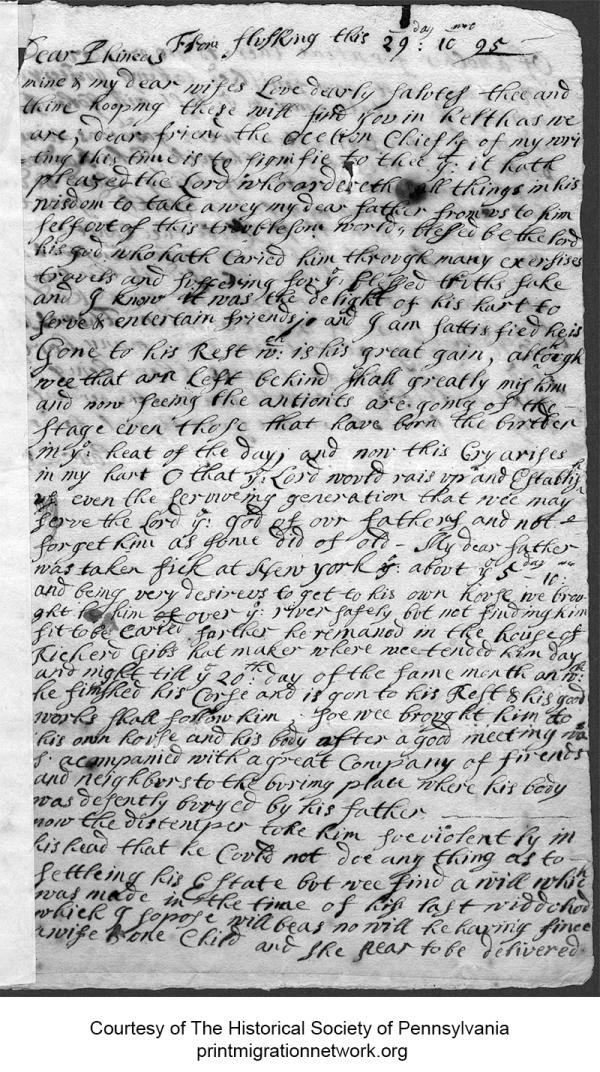 From flushing this 29: day 10 mo: 95
Dear Phineas
mine & my dear wifes Love dearly salutes thee and
thine hopeing these will find you in helth as we
are; dear friend the ocetion Chiefly of my wri
ting this time is to signifie to thee yt: it hath
pleased the Lord who ardereth all things in his
wisdom to take awey my dear father from us to him
self out of this troublesom world, blessed be the lord
his god who hath caried him through many exersises
travels and suffering for ye: blessed truths sake
and I know it was the delight of his hart to
serve & entertain friends; and I am sattisfied he is
Gone to his Rest wch: is his great gain, altough
wee that are Left behind shall greatly mis him
and now seeing the antionts are going of the
stage even those that have born the burden
in ye: heat of the day, and now this Cry arises
in my hart O that ye: Lord would rais up and Establish
us even the serviveing generation that wee may
serve the Lord ye: god of our fathers and not
forget him as some did of old - My dear father
was taken sick at New york ye: about ye 5 day 10 mo
and being very desirous to get to his own house we brou
ght him over ye: river safely but not finding him
fit to be caried farther he remaned in the house of
Richerd Gibs hat maker where wee tended him day
and night till ye 20th: day of the same month on wch:
he finished his Corse and is gon to his Rest & his good
works shall follow him; soe wee brought him to
his own house and his body after a good meeting wa
s acompanied with a great Company of friends
and neighbors to the buring place where his body
was desently buryed by his father
now the distemper toke him soe violently in
his head that he Could not doe any thing as to
settleing his Estate but wee find a will which
was made in the time of his last widdohod
which I sopose will be as no will he having since
a wife & one Child and she near to be delivered
Courtesy of The Historical Society of Pennsylvania
printmigrationnetwork.org